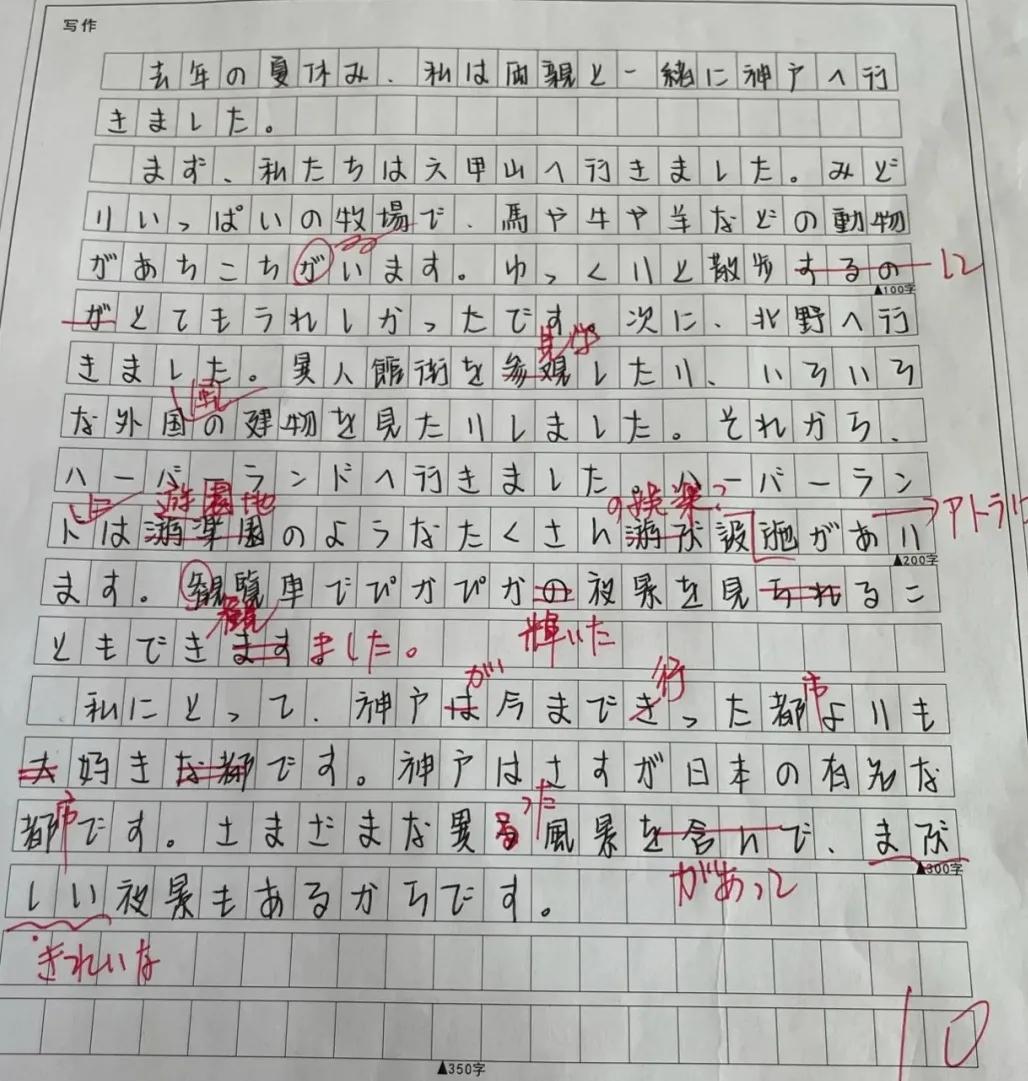 写作
去年の夏休み、私は両親と一緒に神戸へ行
きました。
まず、私たちは六甲山へ行きました。みど
りいっぱいの牧場で、馬や牛や羊などの動物
があちこちがいます。ゆっくりと散歩するの
に
▲100字
がとてもうれしかったです。次に、北野へ行
見学
きました。異人館街を参観したり、いろいろ
風
な外国の建物を見たりしました。それから、
ハーバーランドへ行きました。ハーバーラン
遊園地
の娯楽?
ドは游楽園のようなたくさん游び設施があり
アトラ
▲200字
ます。観覧車でぴかぴかの夜景を見られるこ
観
輝いた
ともできますました。
が
行
市
私にとって、神戸は今まできった都よりも
大好きな都です。神戸はさすが日本の有名な
市
った
都です。さまざまな異る風景を含んで、まぶ
があって
▲300字
しい夜景もあるからです。
きれいな
10
▲350字